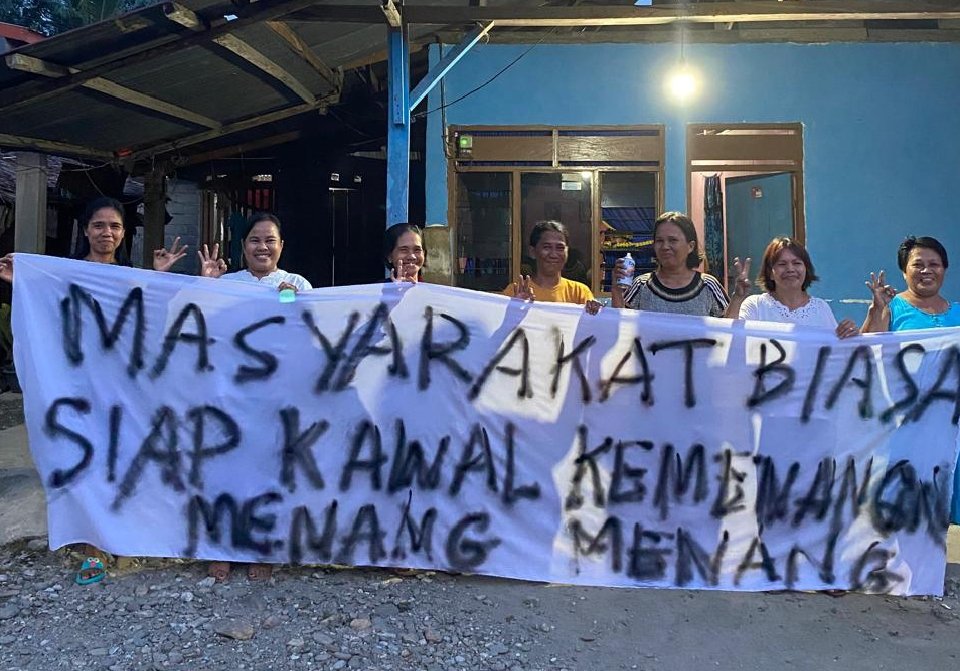 MASYARAKAT BIASA
SIAP KAWAL KEMENANGAN
MENANG MENANG